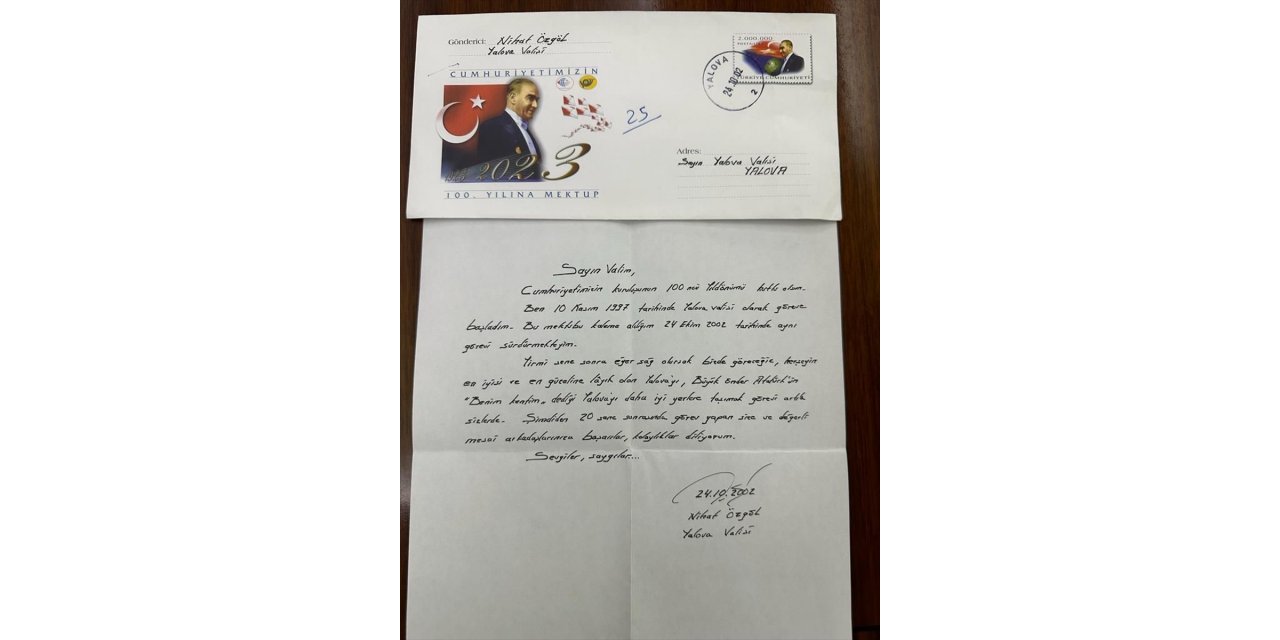 Gönderici: Nihat Özgöl
Yalova Valisi
CUMHURİYETİMİZİN
2023
100. YILINA MEKTUP
25
2.000.000
TÜRKİYE CUMHURİYETİ
YALOVA
24.10.02
2
Adres:
Sayın Yalova Valisi
YALOVA
Sayın Valim,
Cumhuriyetimizin kuruluşunun 100 ncü Yıldönümü kutlu olsun.
Ben 10 Kasım 1997 tarihinde Yalova valisi olarak göreve
başladım. Bu mektubu kaleme aldığım 24 Ekim 2002 tarihinde aynı
görevi sürdürmekteyim.
Yirmi sene sonra eğer sağ olursak bizde göreceğiz, herşeyin
en iyisi ve en güzeline lâyık olan Yalova'yı, Büyük önder Atatürk'ün
"Benim kentim" dediği Yalova'yı daha iyi yerlere taşımak görevi artık
sizlerde. Şimdiden 20 sene sonrasında görev yapan size ve değerli
mesai arkadaşlarınıza başarılar, kolaylıklar diliyorum.
Sevgiler, saygılar...
24.10.2002
Nihat Özgöl
Yalova Valisi